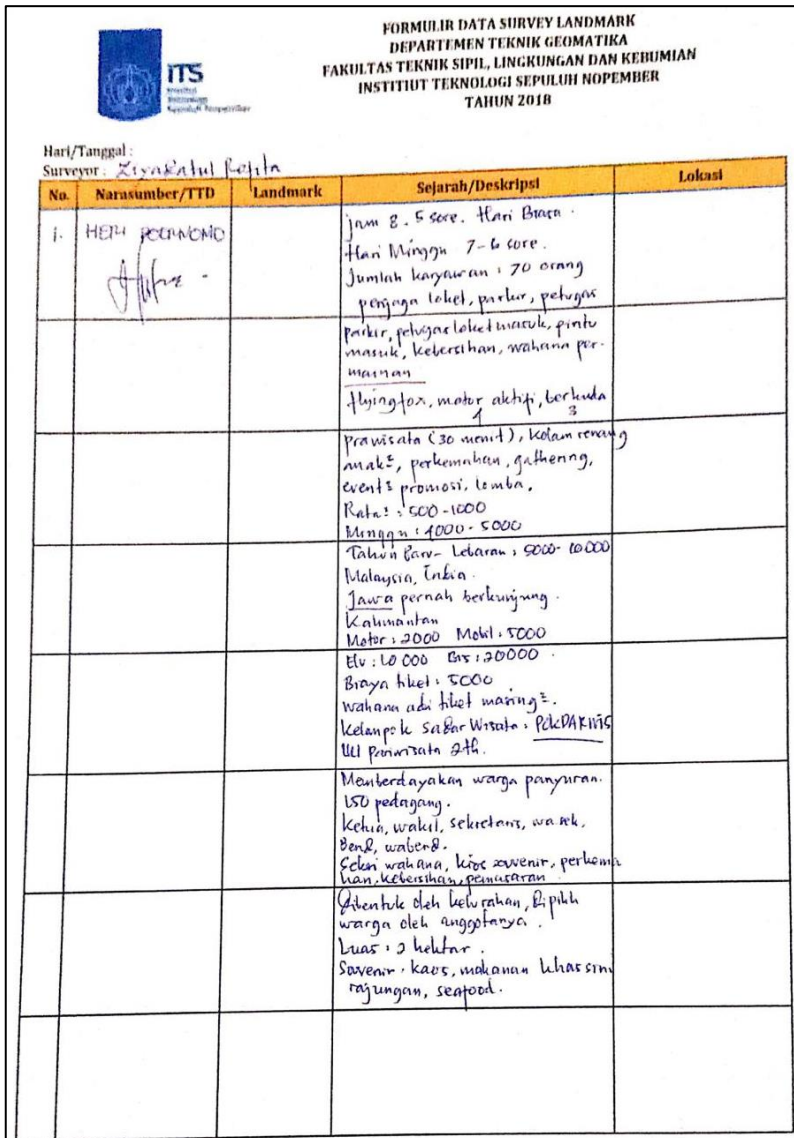 FORMULIR DATA SURVEY LANDMARK
DEPARTEMEN TEKNIK GEOMATIKA
FAKULTAS TEKNIK SIPIL, LINGKUNGAN DAN KEBUMIAN
INSTITIUT TEKNOLOGI SEPULUH NOPEMBER
TAHUN 2018
ITS
Institut
Teknologi
Sepuluh Nopember
Hari/Tanggal :
Surveyor :
No. Narasumber/TTD Landmark Sejarah/Deskripsi Lokasi
1. HERI POERNOMO
jam 8 - 5 sore. Hari Biasa.
Hari Minggu 7-6 sore.
Jumlah karyawan : 70 orang
penjaga loket, parkir, petugas
parkir, petugas loket masuk, pintu
masuk, kebersihan, wahana per-
mainan
flying fox, motor aktifi, berkuda
1 3
prawisata (30 menit), kolam renang
anak², perkemahan, gathering,
event² promosi, lomba.
Rata² : 500-1000
Minggu : 4000-5000
Tahun Baru - Lebaran : 5000-10000
Malaysia, India.
Jawa pernah berkunjung.
Kalimantan
Motor : 2000 Mobil : 5000
Elv : 10 000 Bis : 20000.
Biaya tiket : 5000
wahana ada tiket masing².
Kelompok Sadar Wisata : POKDARWIS
UU pariwisata 2th.
Memberdayakan warga panyuran.
150 pedagang.
Ketua, wakil, sekretaris, wasek,
Bend, wabend.
Seksi wahana, kios souvenir, perkema
han, kebersihan, pemasaran
Dibentuk oleh kelurahan, Dipilih
warga oleh anggotanya.
Luas : 2 hektar.
Souvenir : kaos, makanan khas sini
rajungan, seafood.